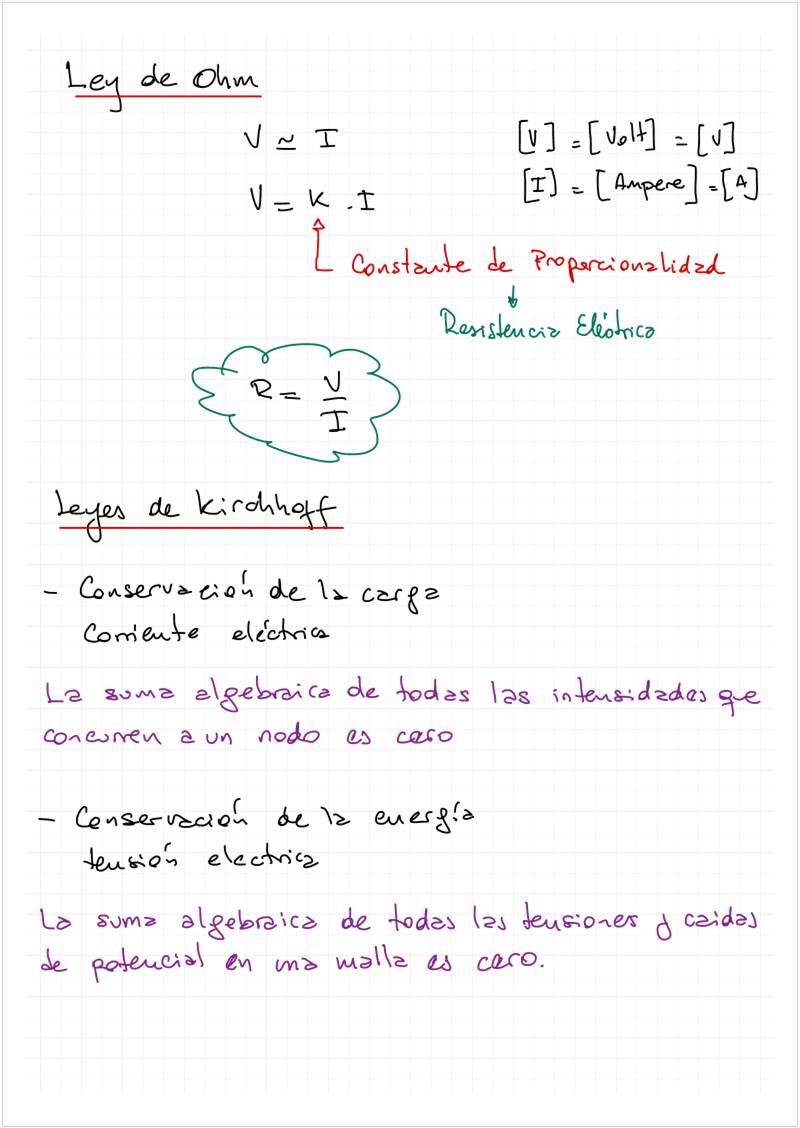 Ley de Ohm
V ≃ I
[V] = [Volt] = [V]
V = K . I
[I] = [Ampere] = [A]
Constante de Proporcionalidad
Resistencia Eléctrica
R = V / I
Leyes de Kirchhoff
- Conservación de la carga
Corriente eléctrica
La suma algebraica de todas las intensidades que
concurren a un nodo es cero
- Conservación de la energía
tensión electrica
La suma algebraica de todas las tensiones y caidas
de potencial en una malla es cero.